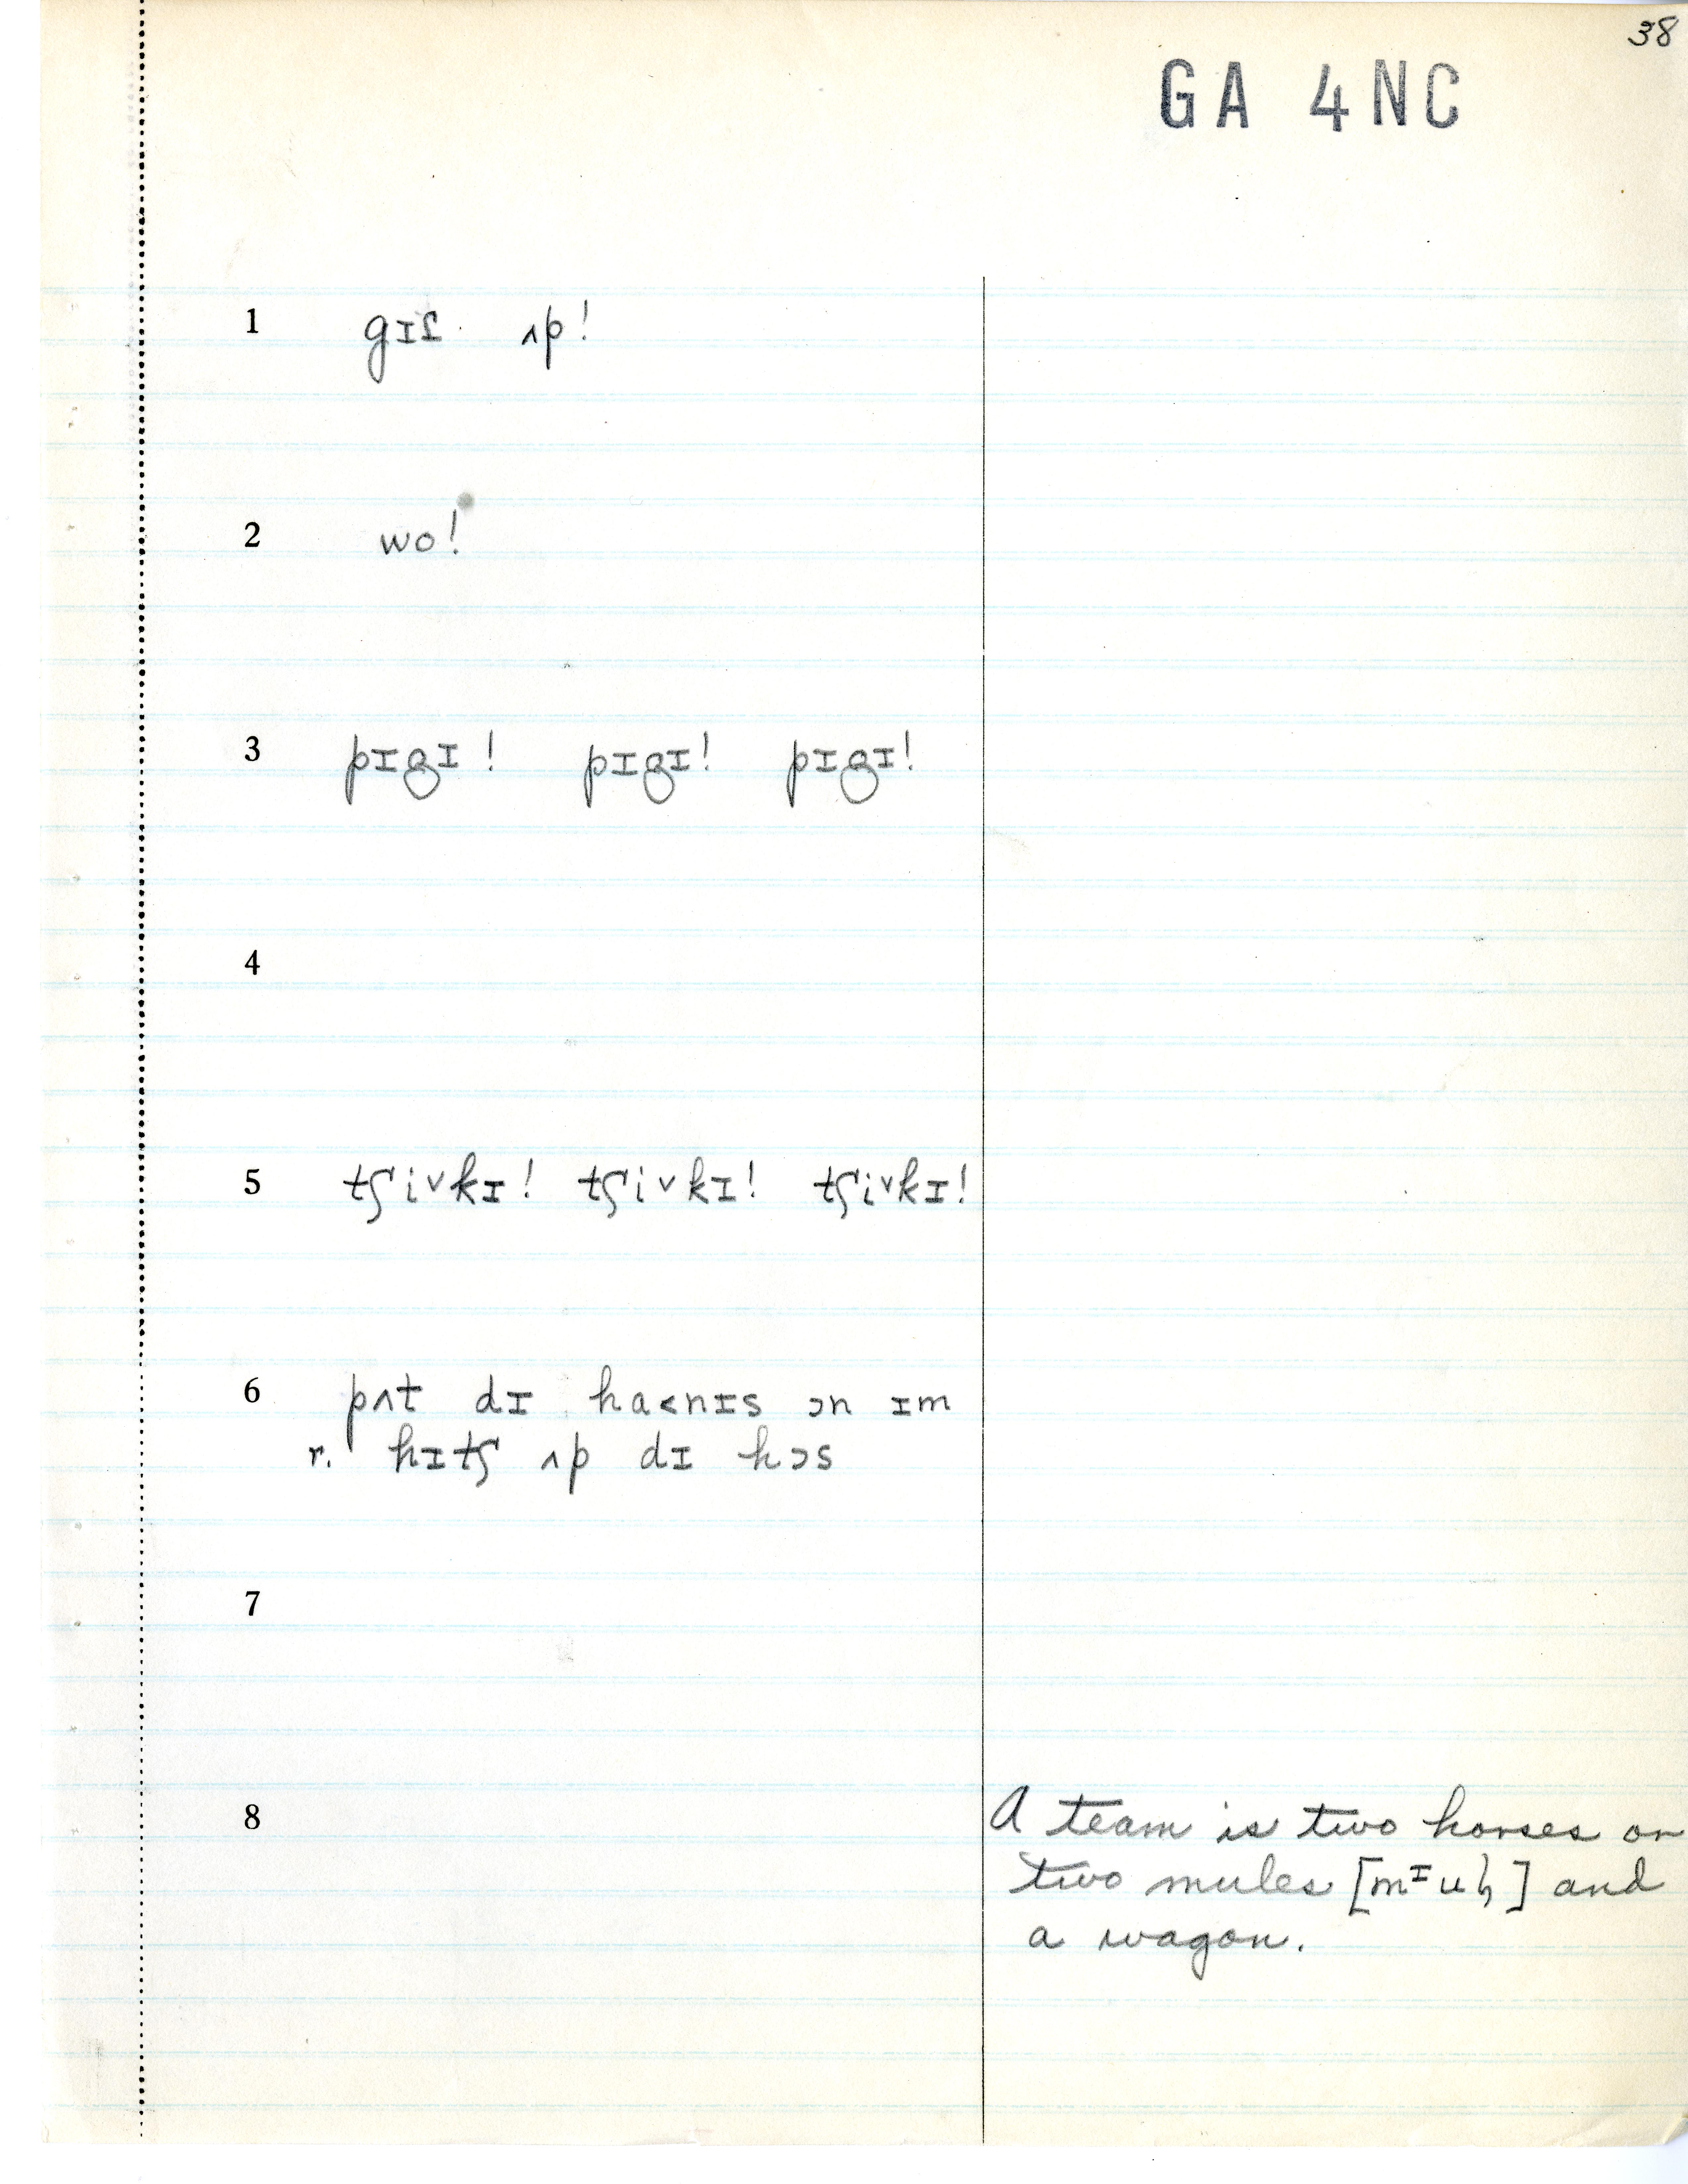 38
GA 4NC
1 gɪſ ʌp!
2 wo!
3 pɪgɪ! pɪgɪ! pɪgɪ!
4
5 tʃi˅kɪ! tʃi˅kɪ! tʃi˅kɪ!
6 pʌt dɪ ha<nɪs ɔn ɪm
r. hɪtʃ ʌp dɪ hɔs
7
8 A team is two horses or
two mules [mᶦuɮ] and
a wagon.